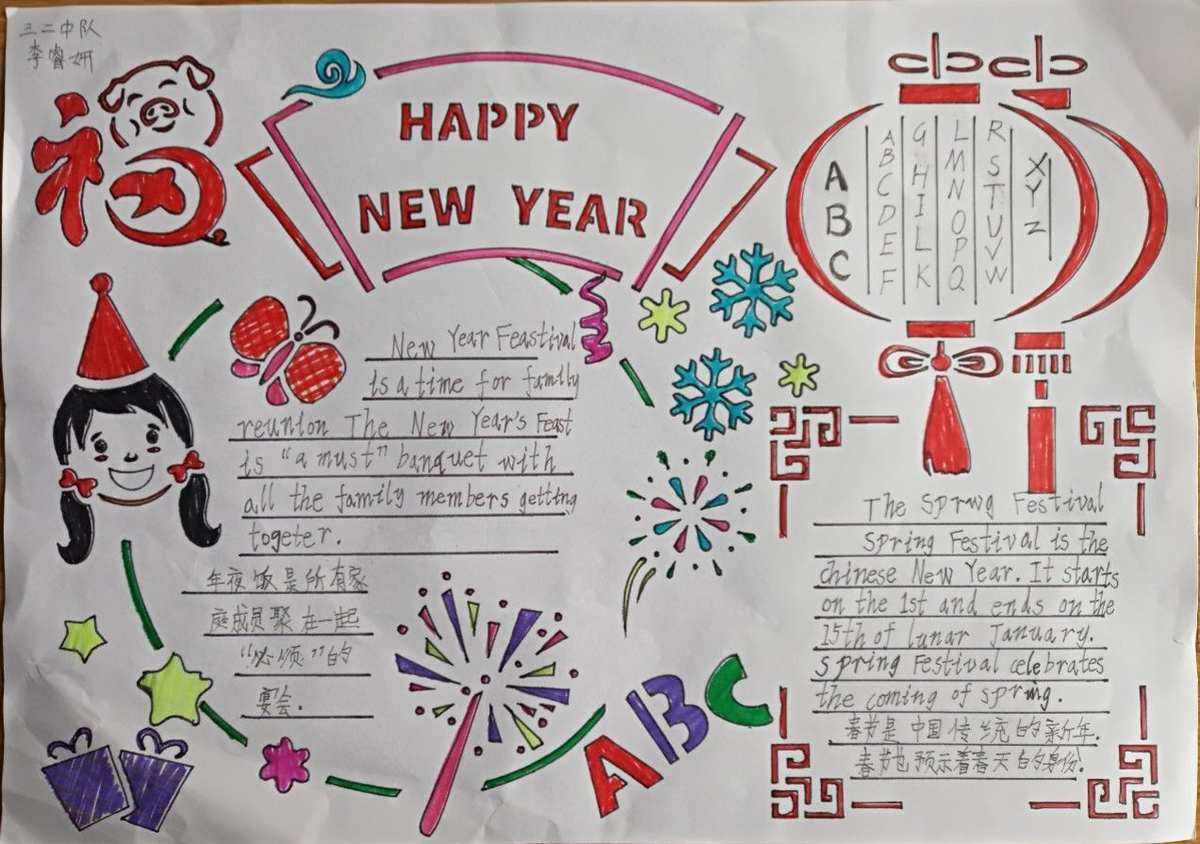 三二中队
李睿妍
福
HAPPY
NEW YEAR
A
B
C
A
B
C
D
E
F
G
H
I
L
K
L
M
N
O
P
Q
R
S
T
U
V
W
X
Y
Z
New Year Feastival
is a time for family
reunion The New Year's Feast
is "a must" banquet with
all the family members getting
togeter.
年夜饭是所有家
庭成员聚在一起
"必须"的
宴会.
ABC
The Sprwg Festival
Spring Festival is the
chinese New Year. It starts
on the 1st and ends on the
15th of lunar January.
Spring Festival celebrates
the coming of spring.
春节是中国传统的新年.
春节也预示着春天的身份.